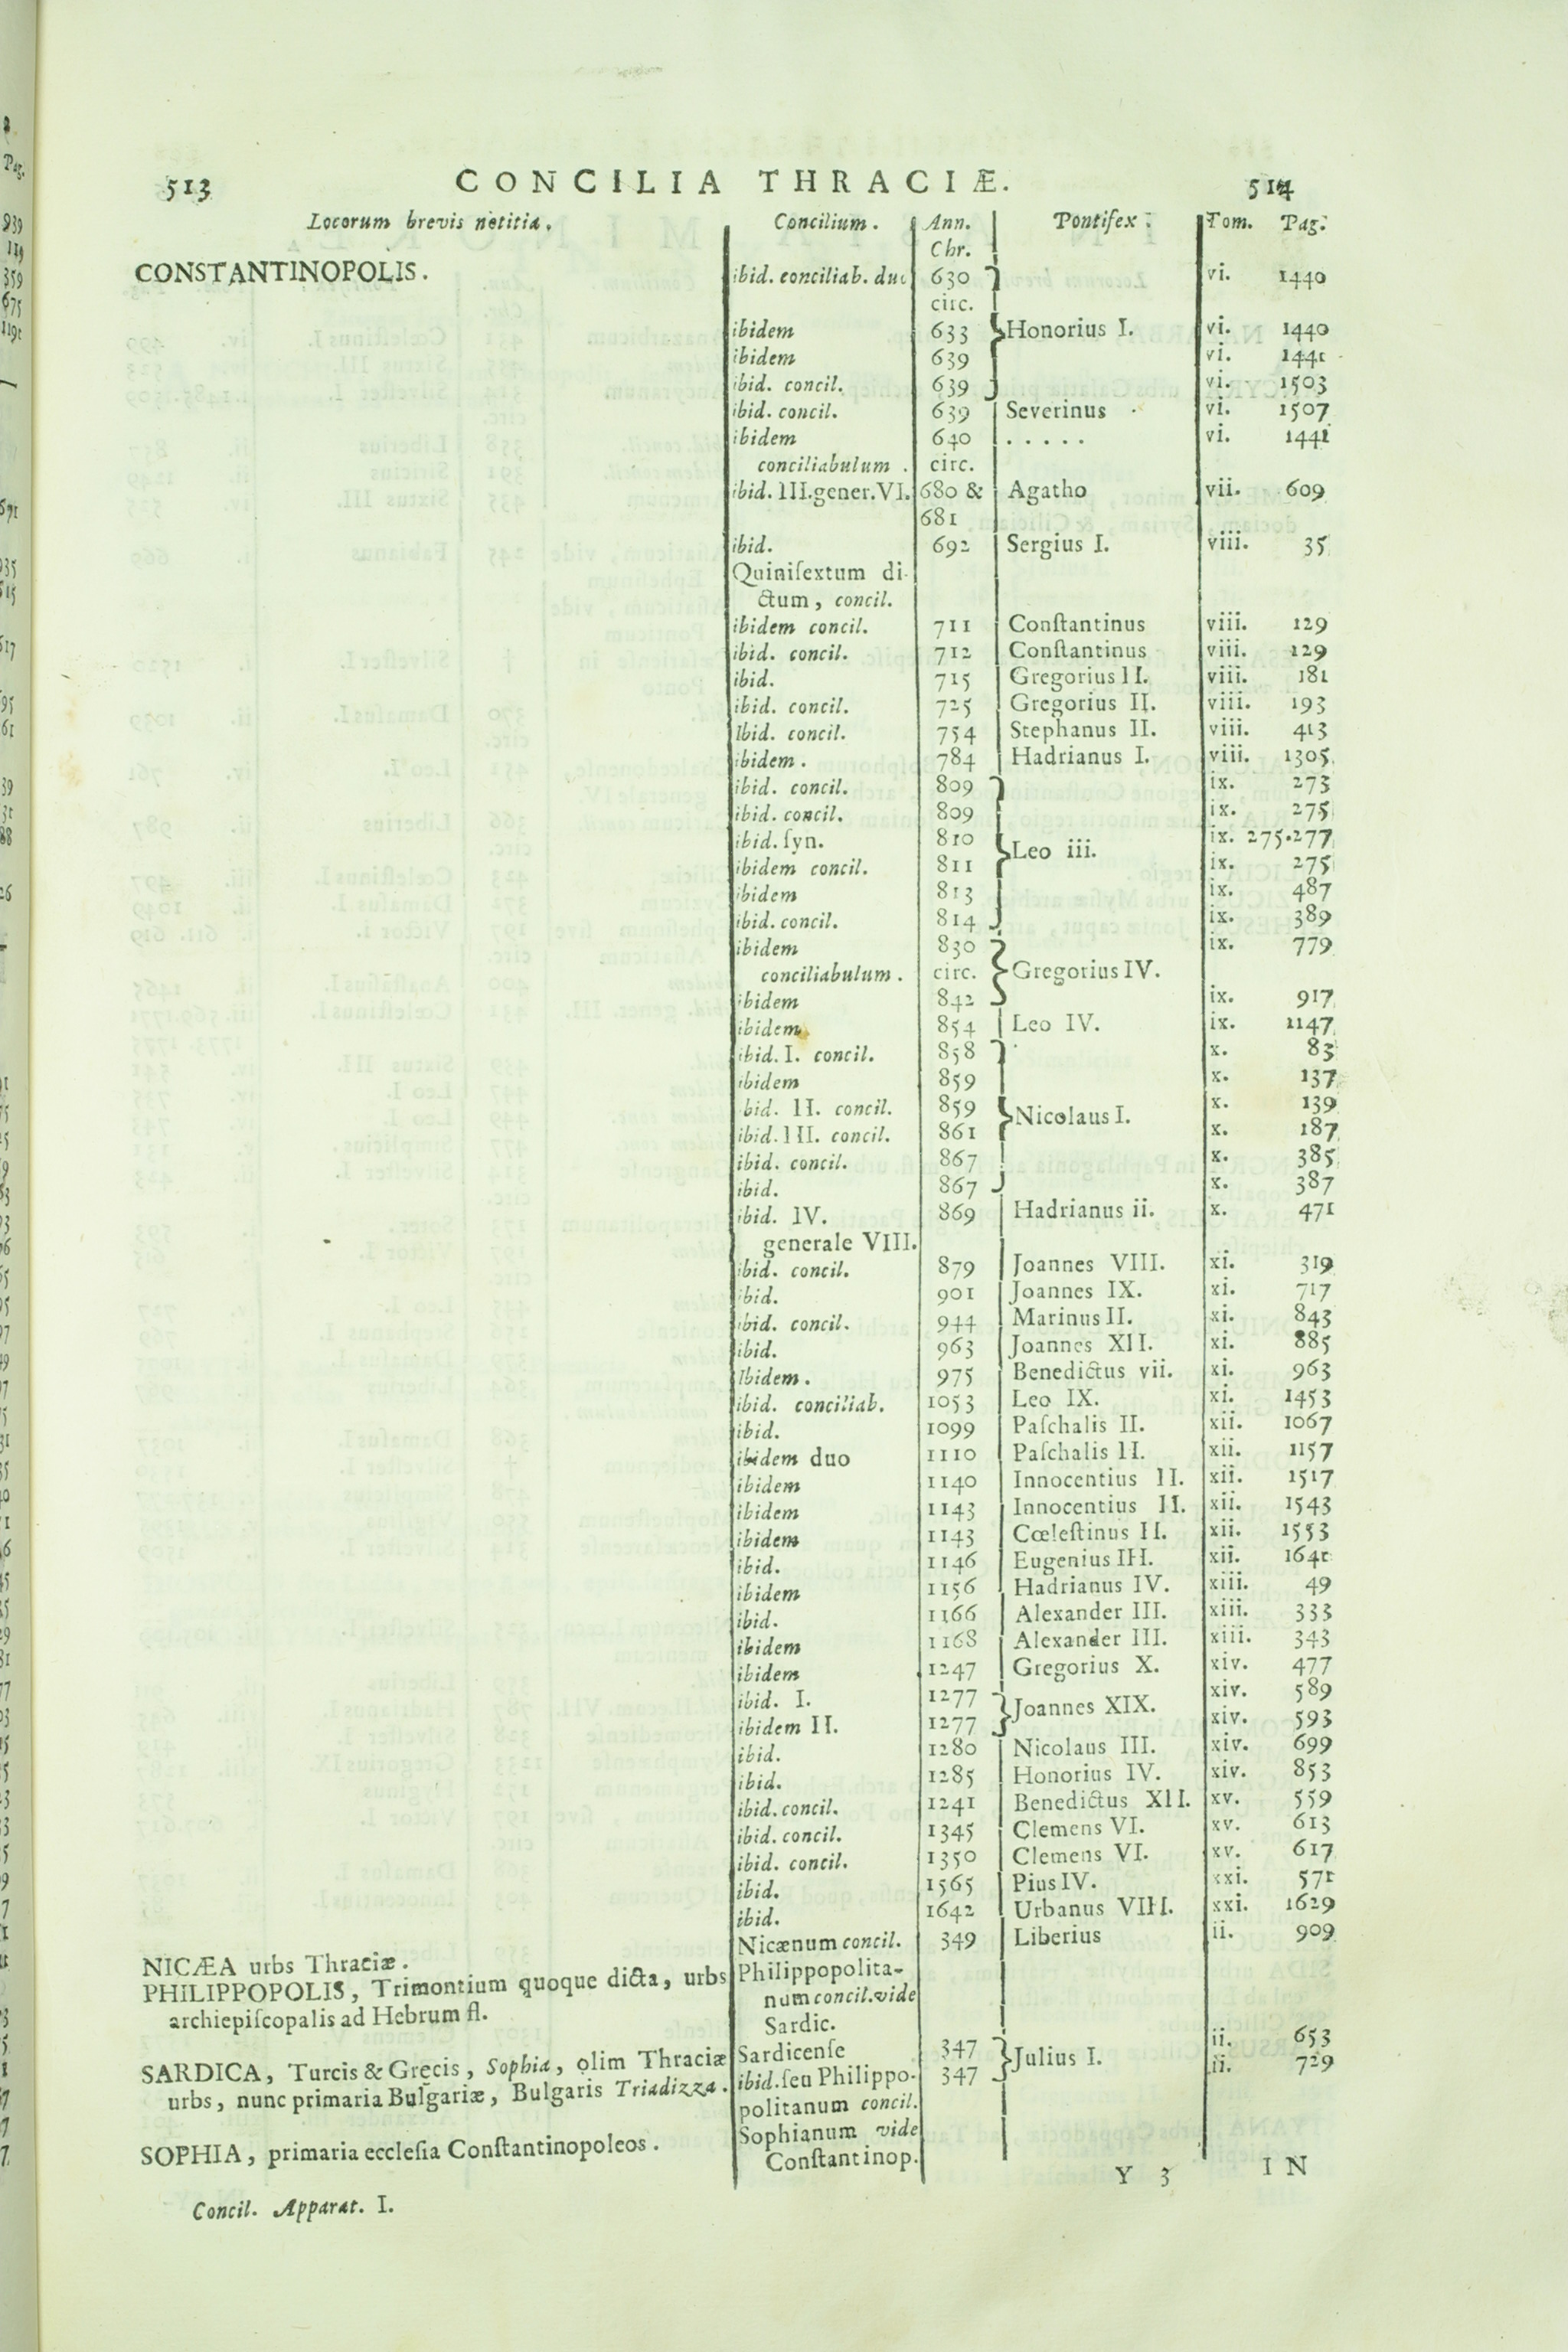 513 CONCILIA THRACIÆ. 514
Locorum brevis notitia. Concilium. Ann. Pontifex. Tom. Pag.
Chr.
CONSTANTINOPOLIS. ibid. conciliab. duo 630 vi. 1440
circ.
ibidem 633 Honorius I. vi. 1440
ibidem 639 vi. 1441
ibid. concil. 639 vi. 1503
ibid. concil. 639 Severinus vi. 1507
ibidem 640 . . . . . vi. 1441
conciliabulum . circ.
ibid. III.gener.VI. 680 & Agatho vii. 609
681
ibid. 692 Sergius I. viii. 35
Quiniſextum di-
ctum, concil.
ibidem concil. 711 Conſtantinus viii. 129
ibid. concil. 712 Conſtantinus viii. 129
ibid. 715 Gregorius II. viii. 181
ibid. concil. 725 Gregorius II. viii. 193
Ibid. concil. 754 Stephanus II. viii. 413
ibidem . 784 Hadrianus I. viii. 1305
ibid. concil. 809 ix. 273
ibid. concil. 809 ix. 275
ibid. ſyn. 810 Leo iii. ix. 275.277
ibidem concil. 811 ix. 275
ibidem 813 ix. 487
ibid. concil. 814 ix. 389
ibidem 830 ix. 779
conciliabulum . circ. Gregorius IV.
ibidem 842 ix. 917
ibidem 854 Leo IV. ix. 1147
ibid. I. concil. 858 x. 83
ibidem 859 x. 137
ibid. II. concil. 859 Nicolaus I. x. 139
ibid. III. concil. 861 x. 187
ibid. concil. 867 x. 385
ibid. 867 x. 387
ibid. IV. 869 Hadrianus ii. x. 471
generale VIII.
ibid. concil. 879 Joannes VIII. xi. 319
ibid. 901 Joannes IX. xi. 717
ibid. concil. 944 Marinus II. xi. 843
ibid. 963 Joannes XII. xi. 885
Ibidem . 975 Benedictus vii. xi. 963
ibid. conciliab. 1053 Leo IX. xi. 1453
ibid. 1099 Paſchalis II. xii. 1067
ibidem duo 1110 Paſchalis II. xii. 1157
ibidem 1140 Innocentius II. xii. 1517
ibidem 1143 Innocentius II. xii. 1543
ibidem 1143 Cœleſtinus II. xii. 1553
ibid. 1146 Eugenius III. xii. 1641
ibidem 1156 Hadrianus IV. xiii. 49
ibid. 1166 Alexander III. xiii. 333
ibidem 1168 Alexander III. xiii. 343
ibidem 1247 Gregorius X. xiv. 477
ibid. I. 1277 Joannes XIX. xiv. 589
ibidem II. 1277 xiv. 593
ibid. 1280 Nicolaus III. xiv. 699
ibid. 1285 Honorius IV. xiv. 853
ibid. concil. 1241 Benedictus XII. xv. 559
ibid. concil. 1345 Clemens VI. xv. 613
ibid. concil. 1350 Clemens VI. xv. 617
ibid. 1565 Pius IV. xxi. 571
ibid. 1642 Urbanus VIII. xxi. 1629
NICÆA urbs Thraciæ. Nicænum concil. 349 Liberius ii. 909
PHILIPPOPOLIS, Trimontium quoque dicta, urbs Philippopolita-
archiepiſcopalis ad Hebrum fl. num concil. vide
Sardic.
SARDICA, Turcis & Gręcis, Sophia, olim Thraciæ Sardicenſe 347 Julius I. ii. 653
urbs, nunc primaria Bulgariæ, Bulgaris Triadizza. ibid. ſeu Philippo- 347 ii. 729
politanum concil.
SOPHIA, primaria eccleſia Conſtantinopoleos. Sophianum vide
Conſtantinop.
Concil. Apparat. I. Y 3 IN